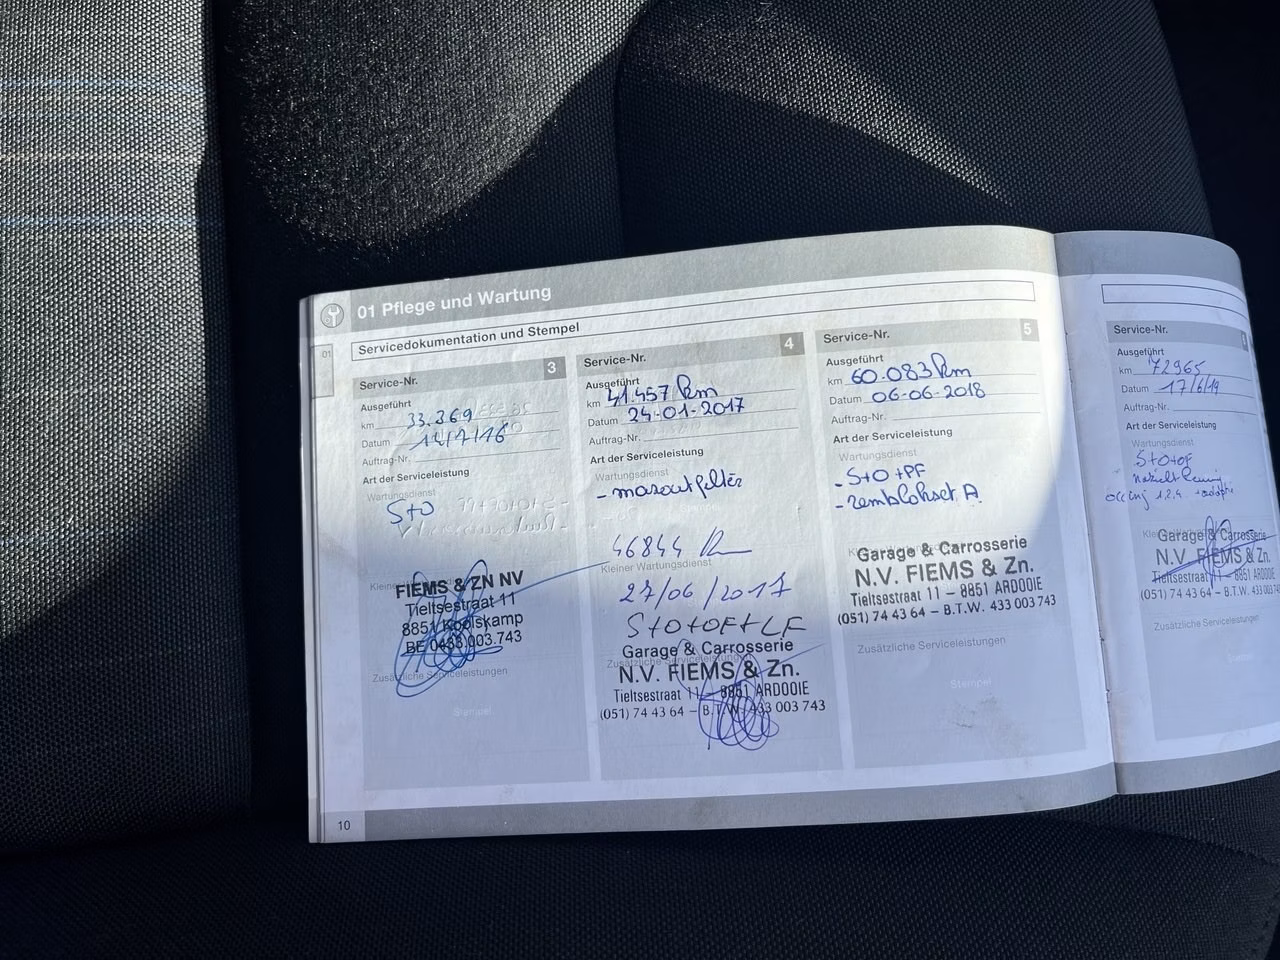 01 Pflege und Wartung
01
Servicedokumentation und Stempel
Service-Nr. 3
Ausgeführt
km 33.369
Datum 14/7/16
Auftrag-Nr.
Art der Serviceleistung
Wartungsdienst
S+O
FIEMS & ZN NV
Tieltsestraat 11
8851 Koolskamp
BE 0433.003.743
Zusätzliche Serviceleistungen
Stempel
Service-Nr. 4
Ausgeführt
km 41.457 km
Datum 24-01-2017
Auftrag-Nr.
Art der Serviceleistung
Wartungsdienst
- mazoutfilter
46844 km
Kleiner Wartungsdienst
27/06/2017
S+O+OF+LF
Garage & Carrosserie
Zusätzliche Serviceleistungen
N.V. FIEMS & Zn.
Tieltsestraat 11 – 8851 ARDOOIE
(051) 74 43 64 – B.T.W. 433 003 743
Service-Nr. 5
Ausgeführt
km 60.083 km
Datum 06-06-2018
Auftrag-Nr.
Art der Serviceleistung
Wartungsdienst
- S+O+PF
- remblokset A.
Garage & Carrosserie
N.V. FIEMS & Zn.
Tieltsestraat 11 – 8851 ARDOOIE
(051) 74 43 64 – B.T.W. 433 003 743
Zusätzliche Serviceleistungen
Stempel
Service-Nr.
Ausgeführt
km 72965
Datum 17/6/19
Auftrag-Nr.
Art der Serviceleistung
Wartungsdienst
S+O+OF
Garage & Carrosserie
N.V. FIEMS & Zn.
Tieltsestraat 11 – 8851 ARDOOIE
(051) 74 43 64 – B.T.W. 433 003 743
Zusätzliche Serviceleistungen
10